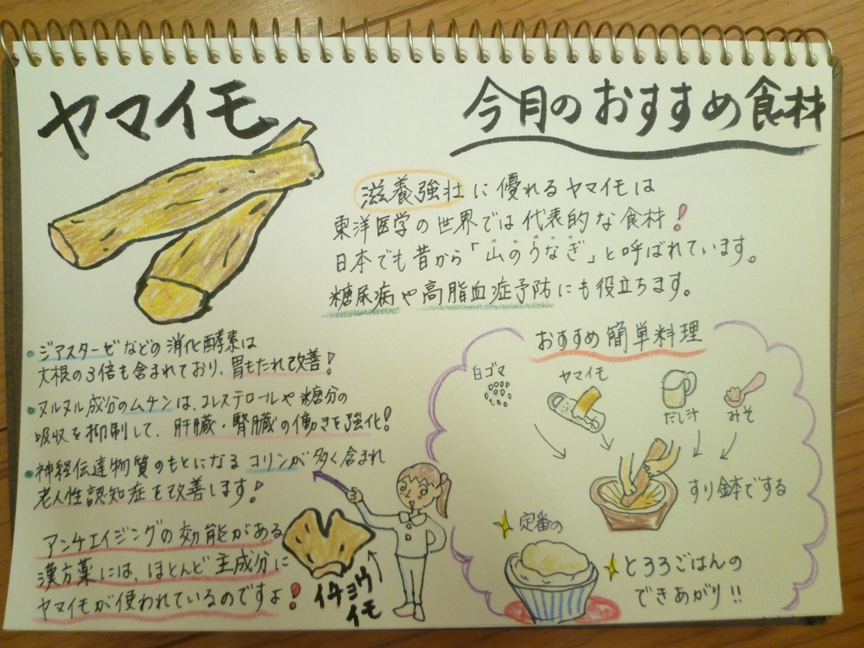 ヤマイモ
今月のおすすめ食材
滋養強壮に優れるヤマイモは
東洋医学の世界では代表的な食材!
日本でも昔から「山のうなぎ」と呼ばれています。
糖尿病や高脂血症予防にも役立ちます。
・ジアスターゼなどの消化酵素は
大根の3倍も含まれており、胃もたれ改善!
・ヌルヌル成分のムチンは、コレステロールや糖分の
吸収を抑制して、肝臓・腎臓の働きを強化!
・神経伝達物質のもとになるコリンが多く含まれ
老人性認知症を改善します!
アンチエイジングの効能がある
漢方薬には、ほとんど主成分に
ヤマイモが使われているのですよ!
イチョウ
イモ
おすすめ簡単料理
白ゴマ
ヤマイモ
だし汁
みそ
すり鉢でする
定番の
とろろごはんの
できあがり!!